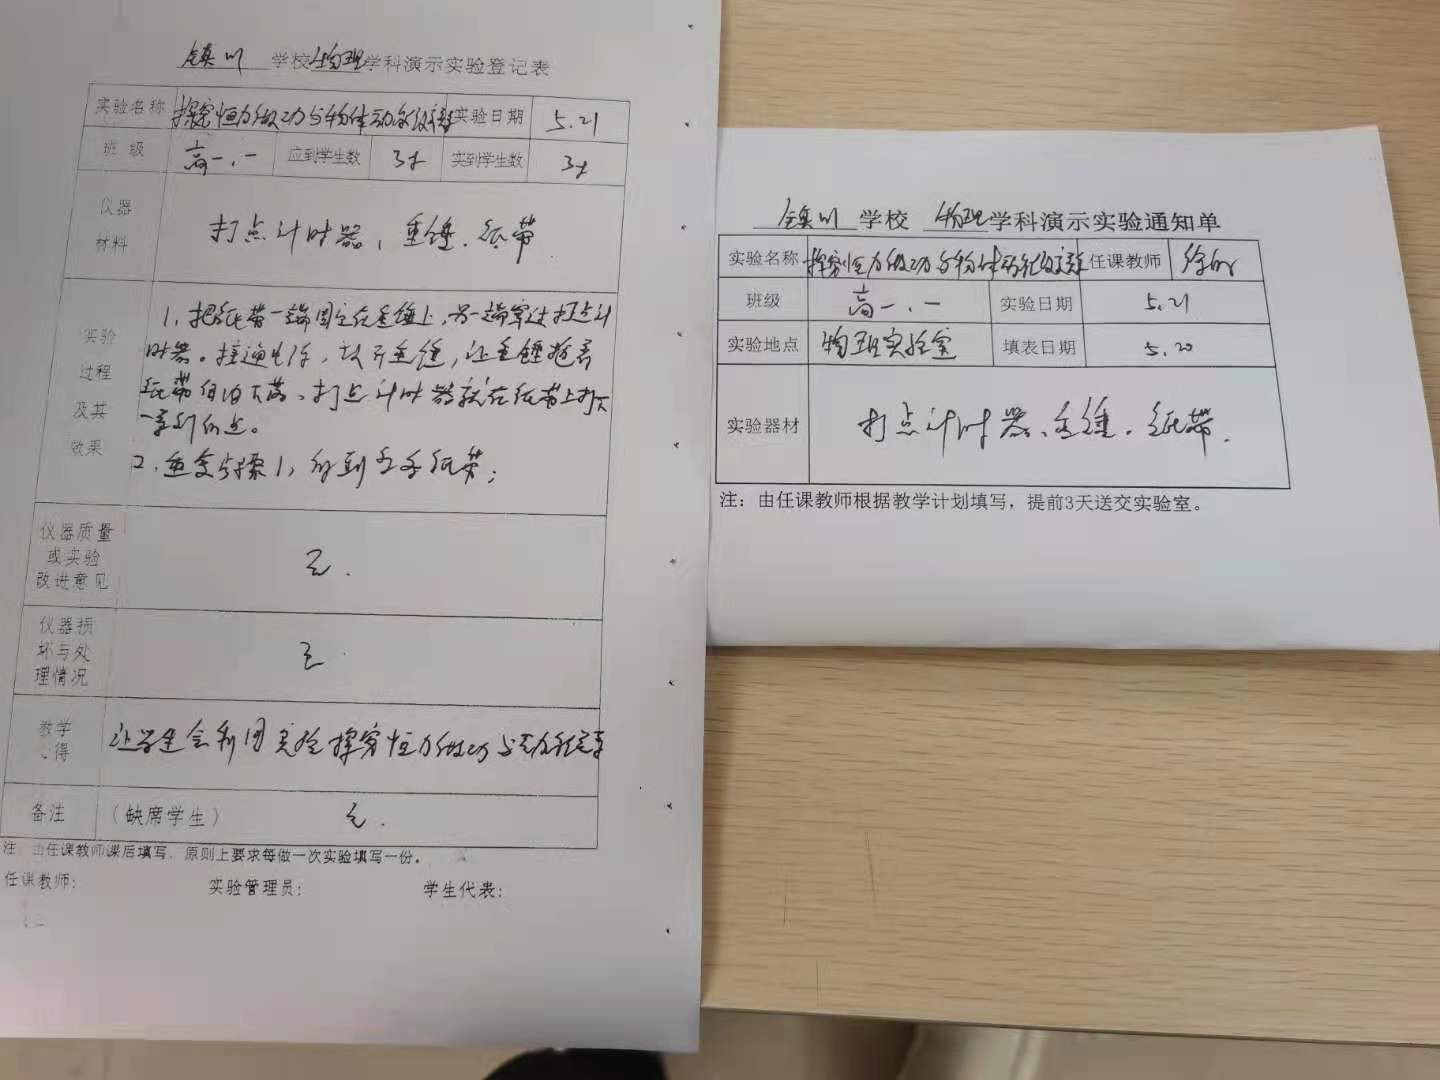 镇川 学校 物理 学科演示实验登记表
实验名称 探究恒力做功与物体动能改变 实验日期 5.21
班 级 高一.一 应到学生数 实到学生数
仪器
材料
打点计时器、重锤、纸带.
实验
过程
及其
效果
1、把纸带一端固定在重锤上,另一端穿过打点计
时器。接通电源,放开重锤,让重锤拖着
纸带自由下落、打点计时器就在纸带上打下
一系列的点。
2、重复步骤1,得到多条纸带;
仪器质量
或实验
改进意见
无.
仪器损
坏与处
理情况
无.
教学
心得
让学生会利用实验探究恒力做功与动能
备注 (缺席学生) 无.
注:由任课教师课后填写,原则上要求每做一次实验填写一份。
任课教师: 实验管理员: 学生代表:
镇川 学校 物理 学科演示实验通知单
实验名称 探究恒力做功与物体动能改变 任课教师 徐
班级 高一.一 实验日期 5.21
实验地点 物理实验室 填表日期 5.20
实验器材 打点计时器、重锤、纸带.
注:由任课教师根据教学计划填写,提前3天送交实验室。